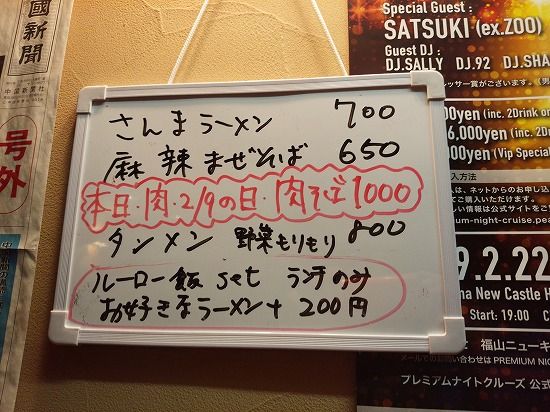 國新聞
中国新聞社
号外
さんまラーメン 700
麻辣まぜそば 650
本日・肉・2/9の日・肉そば 1000
タンメン 野菜もりもり 800
ルーロー飯 set ランチのみ
お好きなラーメン + 200円
Special Guest :
SATSUKI (ex.ZOO)
Guest DJ :
DJ.SALLY DJ.92 DJ.SHA
00yen (inc. 2Drink o
6,000yen (inc. 2D
00yen (Vip Special
入方法
は、ネットからのお申し込
て購入いただけます。
しい情報は公式サイトをご
um-night-cruise.pea
9.2.22
na New Castle H
Start: 19:00
福山ニューキ
メールでのお問い合わせは PREMIUM NIG
プレミアムナイトクルーズ 公式